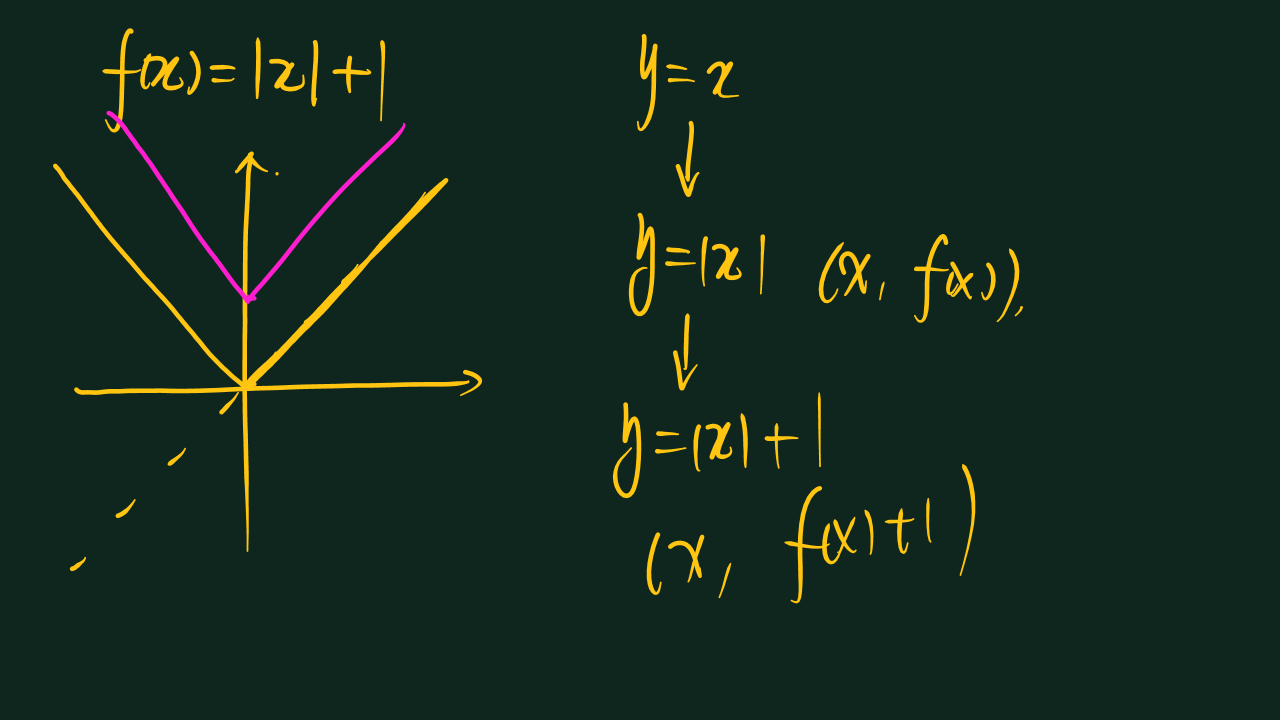 f(x)=|x|+1
y=x
y=|x| (x, f(x)),
y=|x|+1
(x, f(x)+1)